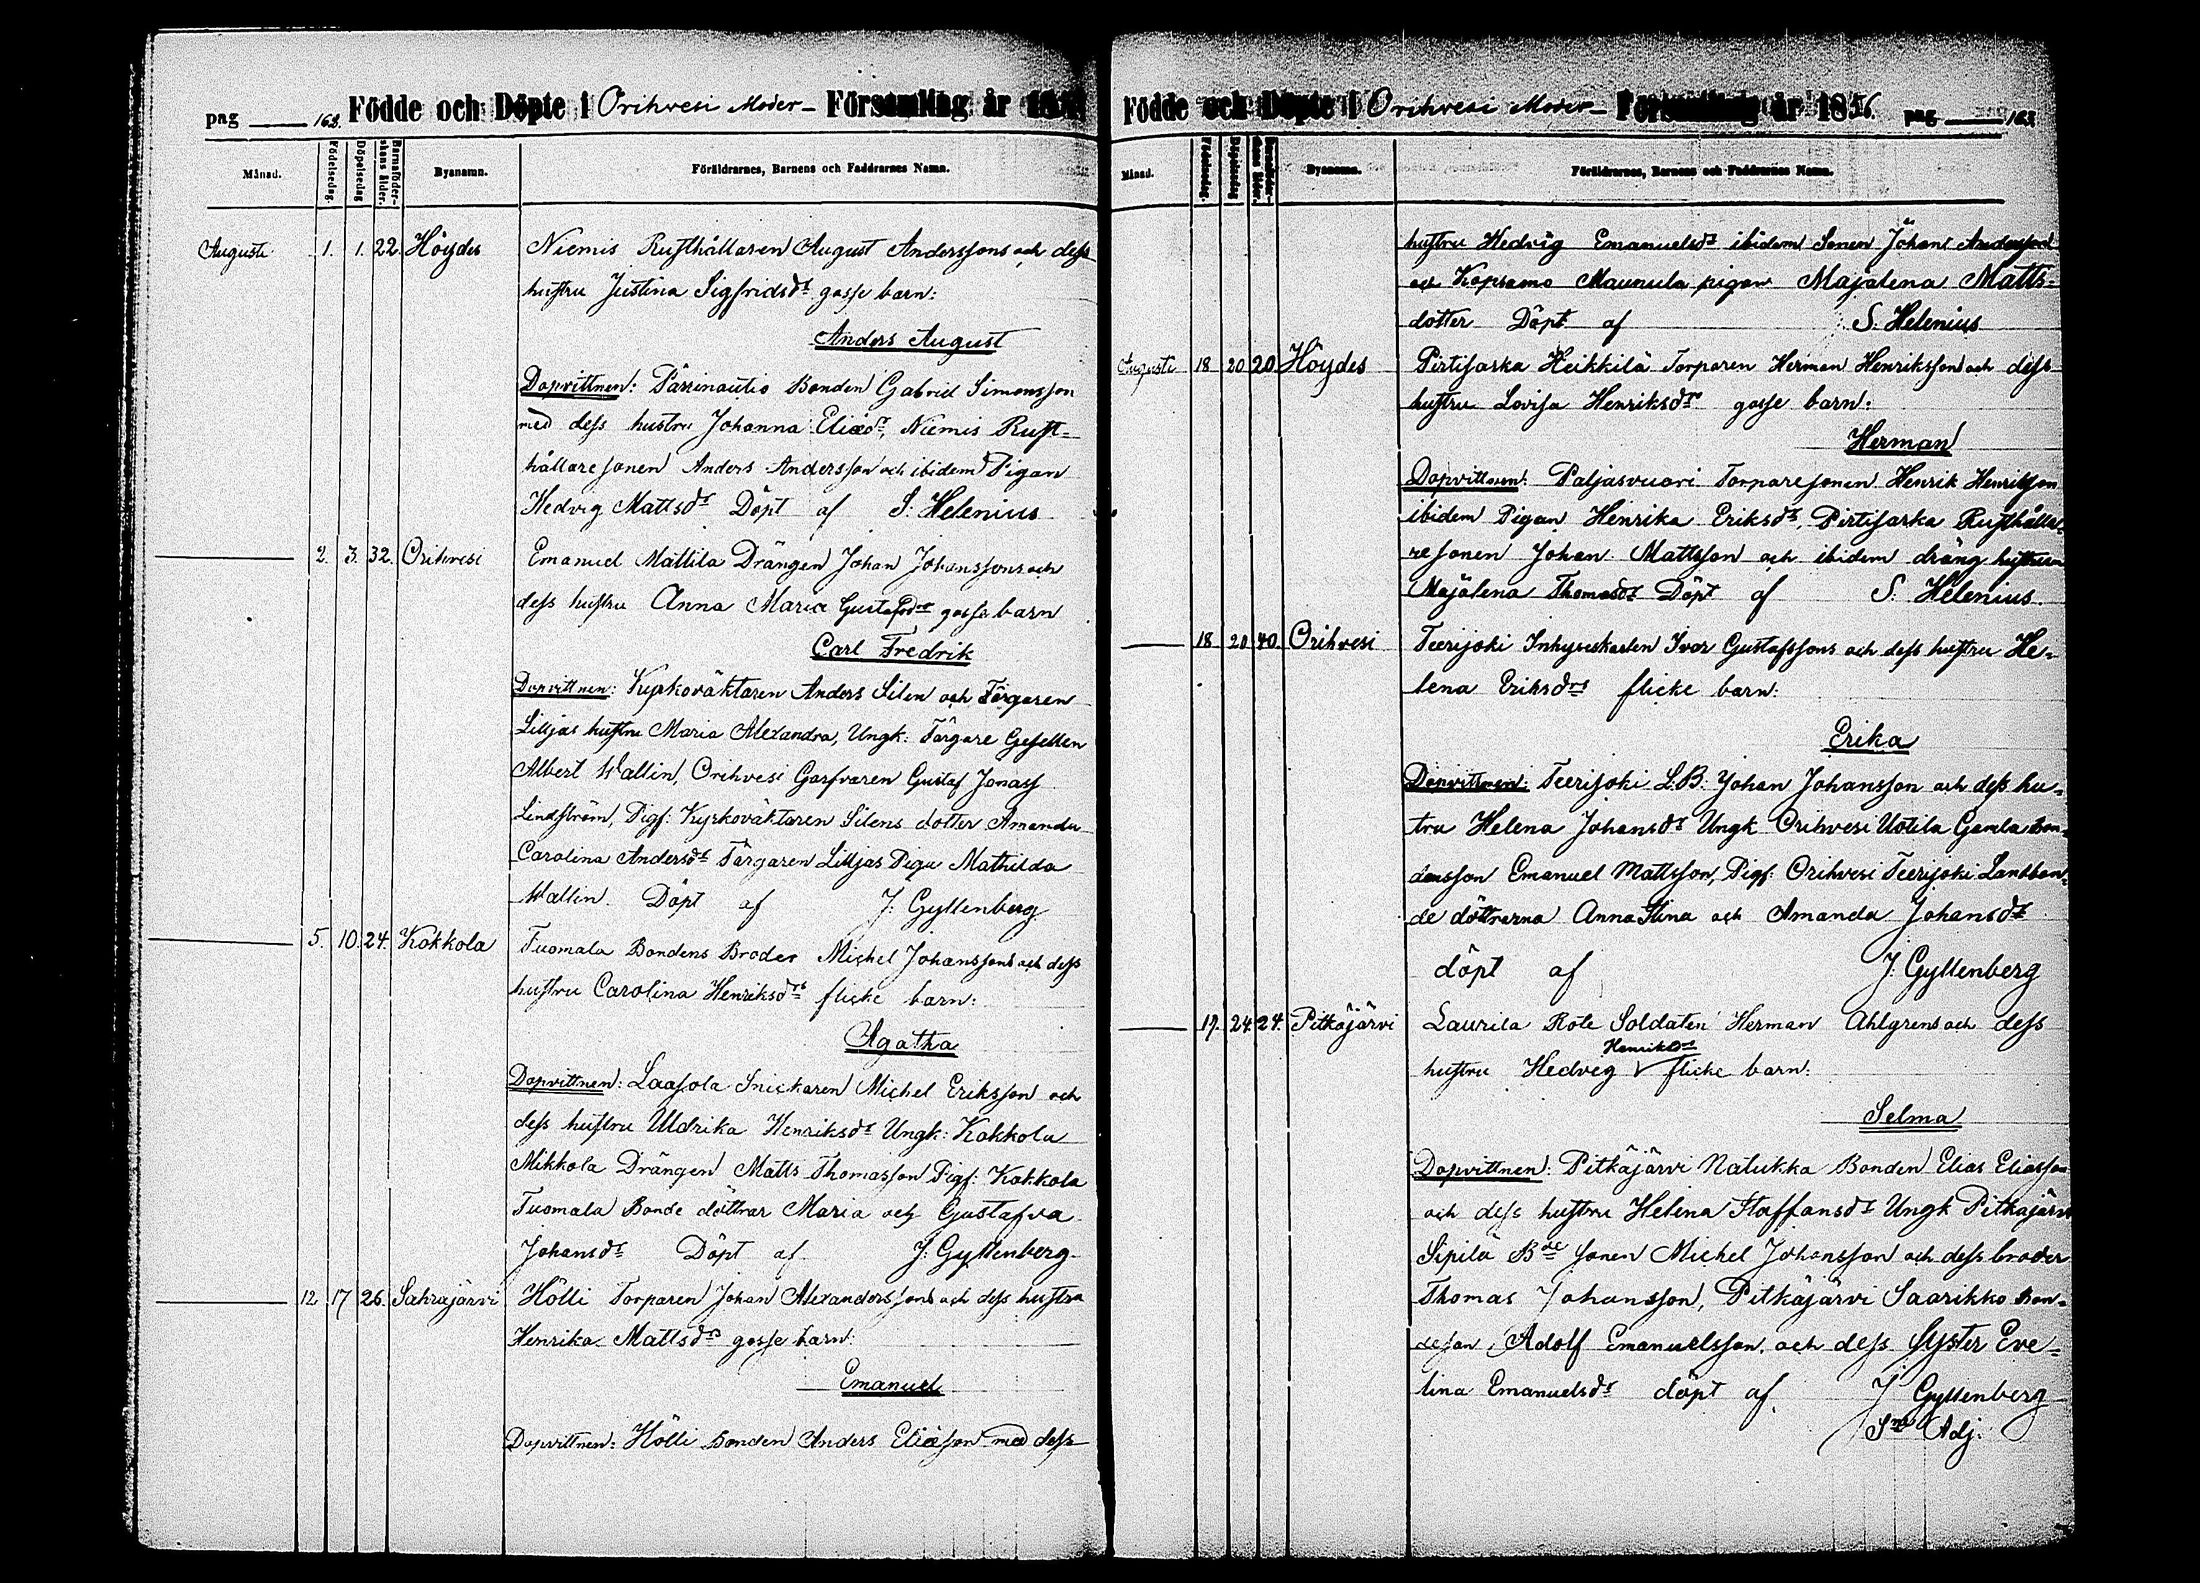 pag 163. Födde och Döpte i Orihvesi Moder- Församling år 18
Månad. Födelsedag. Döpelsedag Barnaföderskans ålder. Byanamn. Föräldrarnes, Barnens och Faddrarnes Namn.
Augusti 1. 1. 22. Höydes Niemis Rusthållaren August Anderssons och dess
hustru Justina Sigfridsdr gosse barn:
Anders August
Dopvittnen: Pässinautio Bonden Gabriel Simonsson
med dess hustru Johanna Eliædr, Niemis Rust-
hållaresonen Anders Andersson och ibidem Pigan
Hedvig Mattsdr Döpt af S. Helenius
2. 3. 32. Orihvesi Emanuel Mattila Drängen Johan Johanssons och
dess hustru Anna Maria Gustafsdr gosse barn
Carl Fredrik
Dopvittnen: Kyrkoväktaren Anders Silen och Färgaren
Lilljas hustru Maria Alexandra, Ungk: Färgare Gesellen
Albert Wallin, Orihvesi Garfvaren Gustaf Jonass
Lindström, Pigf: Kyrkoväktaren Silens dotter Amanda
Carolina Andersdr Färgaren Lilljas Piga Mathilda
Wallin. Döpt af J: Gyllenberg
5. 10. 24. Kokkola Tuomala Bondens Broder Michel Johanssons och dess
hustru Carolina Henriksdr flicke barn:
Agatha
Dopvittnen: Laasola Snickaren Michel Eriksson och
dess hustru Uldrika Henriksdr Ungk: Kokkola
Mikkola Drängen Matts Thomasson Pigf: Kokkola
Tuomala Bonde döttrar Maria och Gustafva
Johansdr Döpt af J: Gyllenberg
12 17 26. Sahrajärvi Hölli Torparen Johan Alexanderssons och dess hustru
Henrika Mattsdr gosse barn:
Emanuel
Dopvittnen: Hölli Bonden Anders Eliæson med dess
Födde och Döpte i Orihvesi Moder- Församling år 1856. pag 163
Månad. Födelsedag. Döpelsedag Barnaföderskans ålder. Byanamn. Föräldrarnes, Barnens och Faddrarnes Namn.
hustru Hedvig Emanuelsdr ibidem Sonen Johan Andersson
och Kopsamo Maunula pigan Majalena Matts-
dotter Döpt af S. Helenius
Augusti 18 20 20 Höydes Pirtisarka Heikkilä Torparen Herman Henriksson och dess
hustru Lovisa Henriksdr gosse barn:
Herman
Dopvittnen: Paljasvuori Torparesonen Henrik Henriksson
ibidem Pigan Henrika Eriksdr, Pirtisarka Rusthålla-
resonen Johan Mattsson och ibidem dräng hustrun
Majalena Thomasdr Döpt af S. Helenius.
18 20 40. Orihvesi Teerijoki Inhyseskarlen Ivar Gustafssons och dess hustru He-
lena Eriksdr flicke barn:
Erika
Dopvittnen: Teerijoki L.B. Johan Johansson och dess hu-
tru Helena Johansdr Ungk Orihvesi Uotila Gamla Bon-
densson Emanuel Mattsson, Pigf: Orihvesi Teerijoki Landbon-
de döttrarna Anna Stina och Amanda Johansdr
döpt af J: Gyllenberg
19. 24 24. Pitkäjärvi Laurila Rote Soldaten Herman Ahlgrens och dess
Henriksdr
hustru Hedveg flicke barn:
Selma
Dopvittnen: Pitkäjärvi Natukka Bonden Elias Eliasson
och dess hustru Helena Staffansdr Ungk Pitkäjärvi
Sipilä Bde sonen Michel Johansson och dess broder
Thomas Johansson, Pitkäjärvi Saarikko Bon-
deson Adolf Emanuelsson, och dess Syster Eve-
lina Emanuelsdr döpt af J Gyllenberg
Sne Adj.